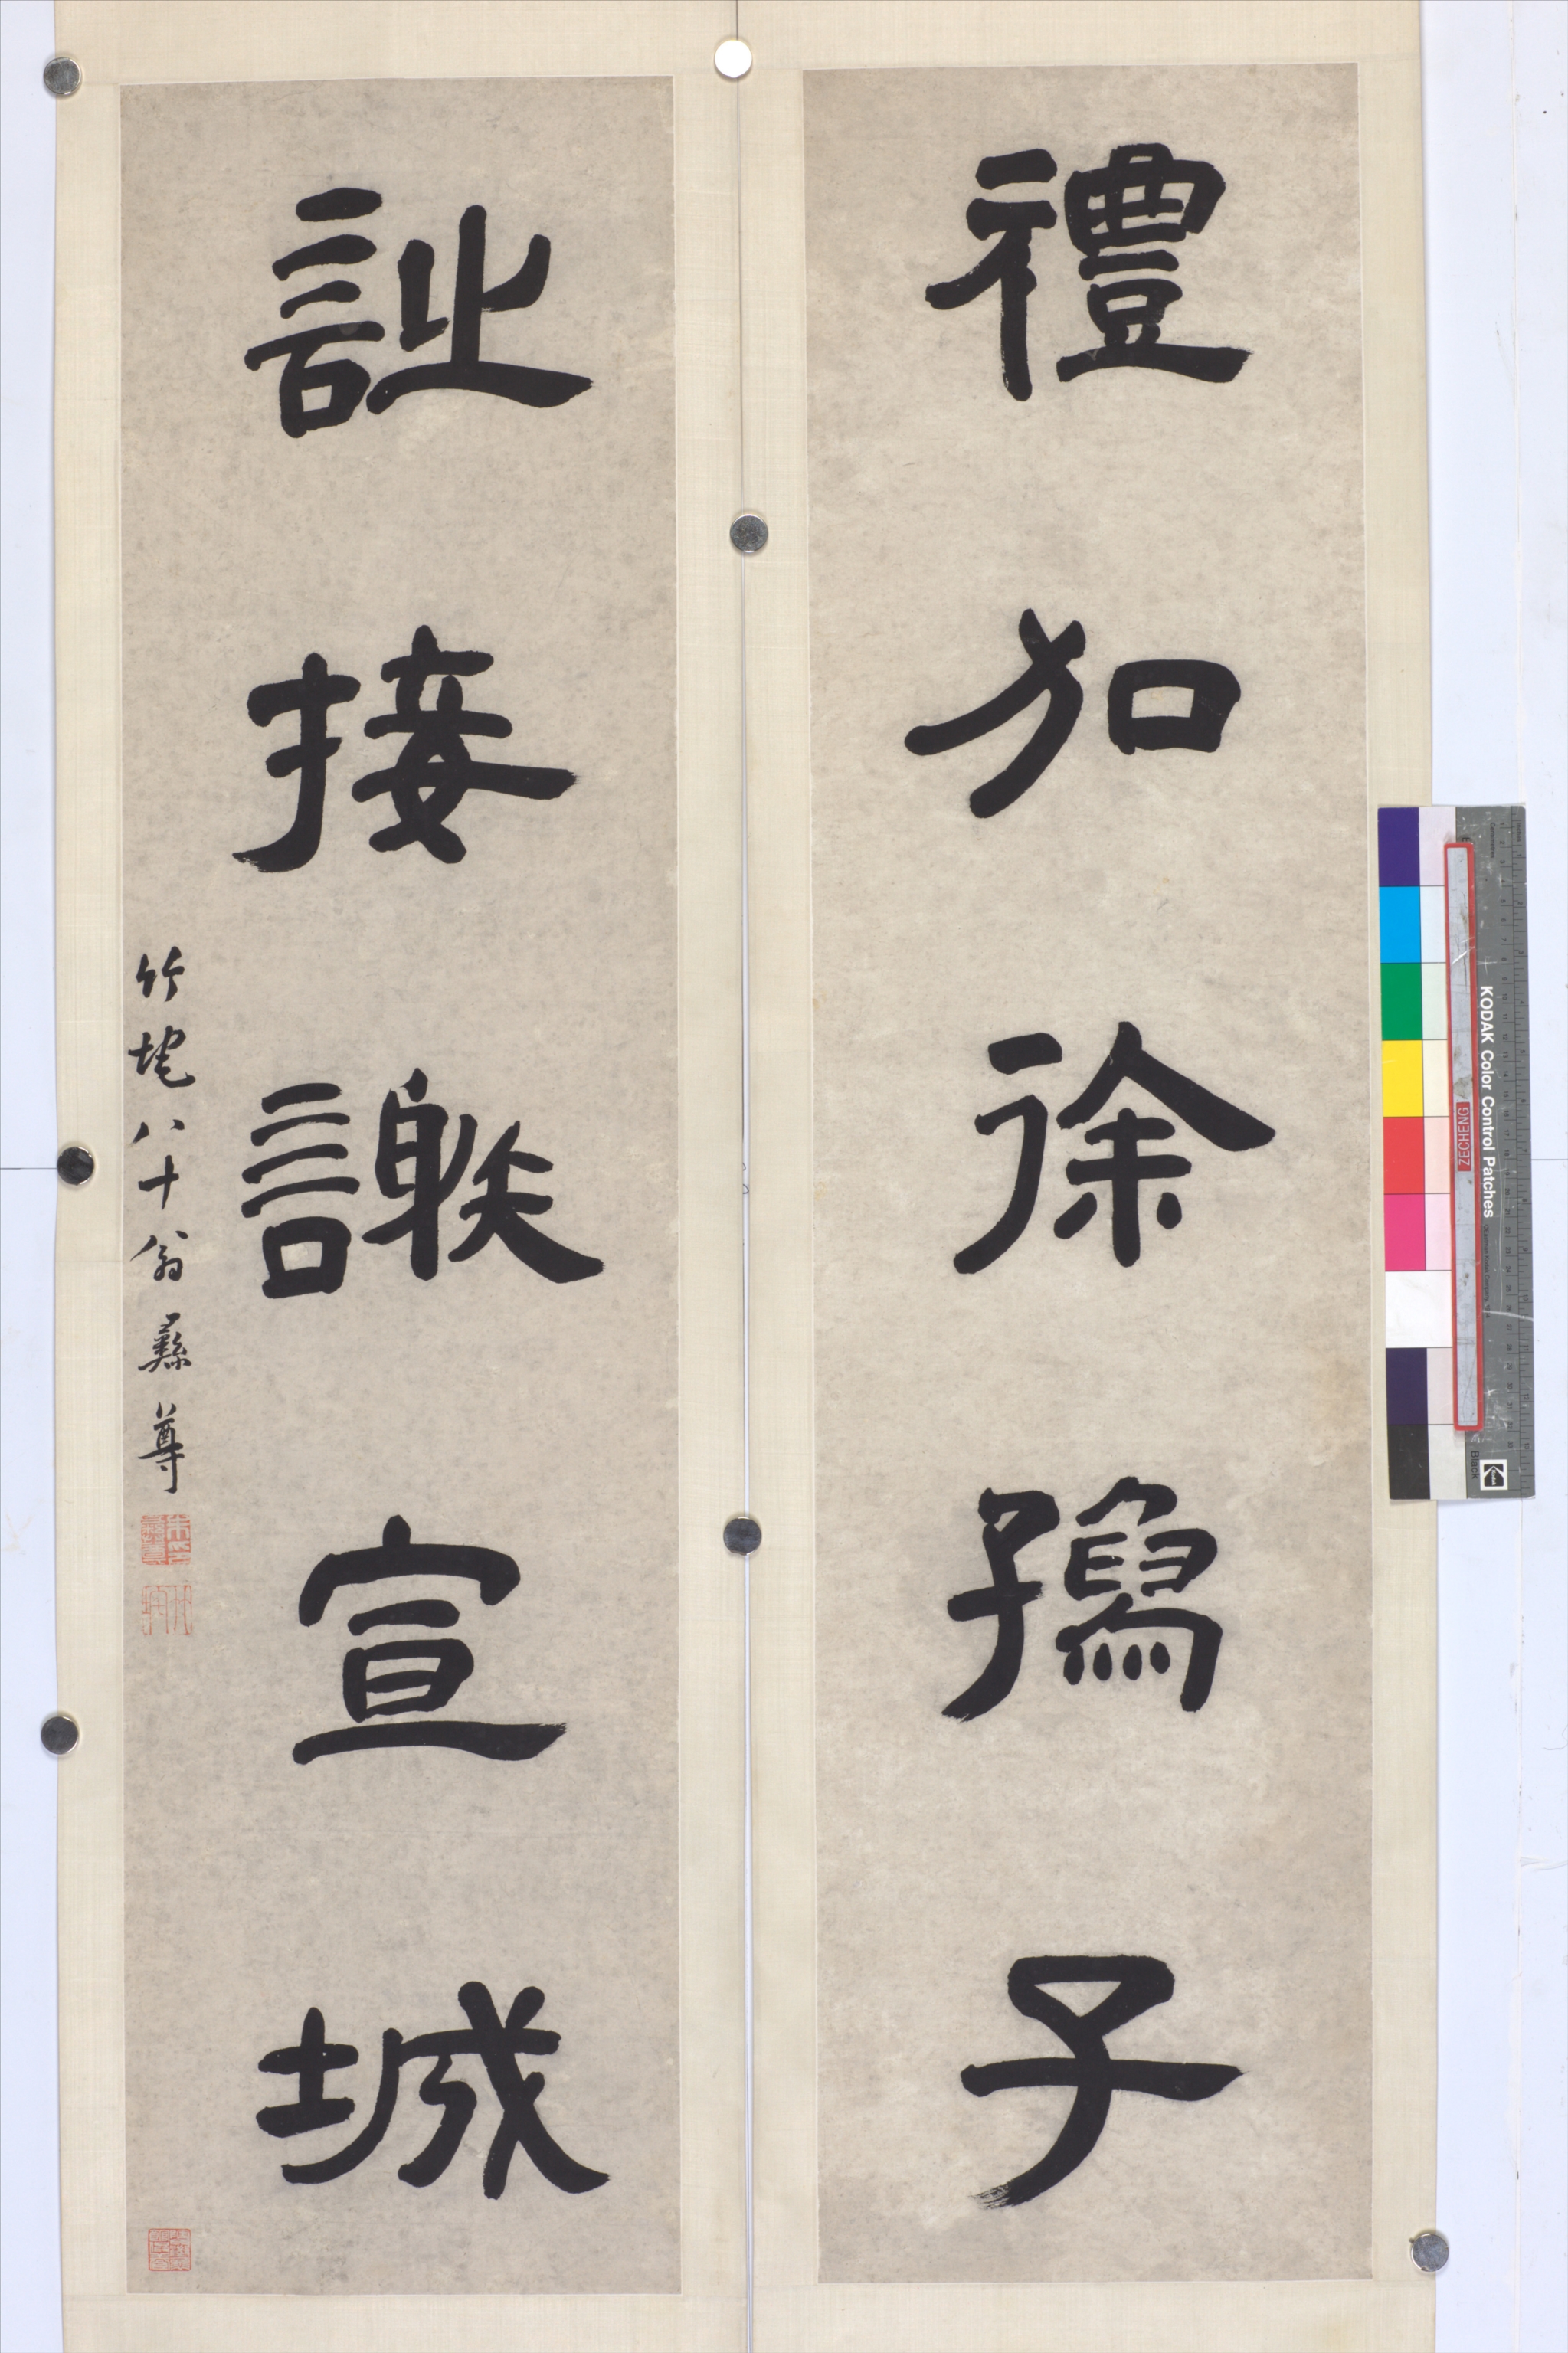 禮加徐孺子
詩接謝宣城
竹垞八十翁彝尊
竹垞
KODAK Color Control Patches
ZECHENG
Black